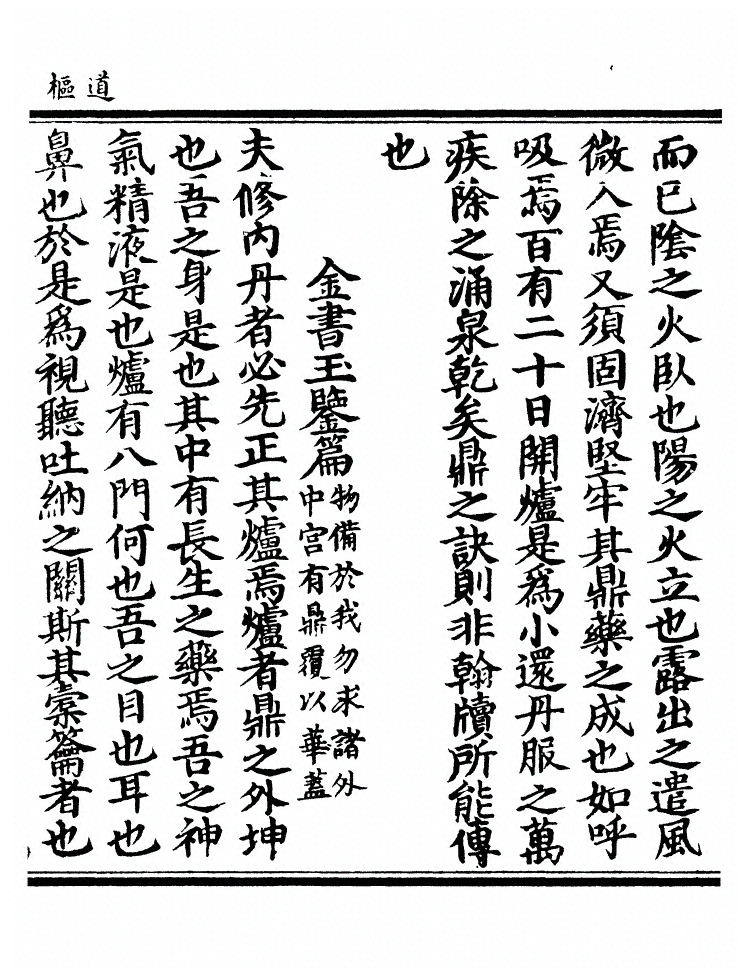 道樞
而已隂之火臥也陽之火立也露出之遣風
微入焉又須固濟堅牢其鼎藥之成也如呼
吸焉百有二十日開爐是爲小還丹服之萬
疾除之涌泉乾矣鼎之訣則非翰牘所能傳
也
金書玉鑒篇 物備於我勿求諸外
中宮有鼎覆以華蓋
夫修內丹者必先正其爐焉爐者鼎之外坤
也吾之身是也其中有長生之藥焉吾之神
氣精液是也爐有八門何也吾之目也耳也
鼻也於是爲視聽吐納之關斯其橐籥者也